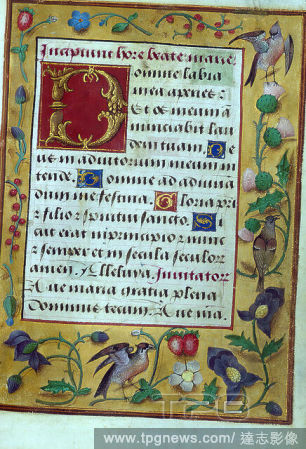 Incipiunt hore beate marie
Domine labia
mea aperies
Et os meum a
nunciabit lau
dem tuam De
us in adiutorium meum in
tende Domine ad adiuua
dum me festina Gloria pa
tri et filio et spiritui sancto S
icut erat in principio et nunc
et semper et in secula seculorum
amen Alleluya Inuitatorium
Aue maria gratia plena
Dominus tecum Aue ma
TPG
www.tpgnews.com/達志影像